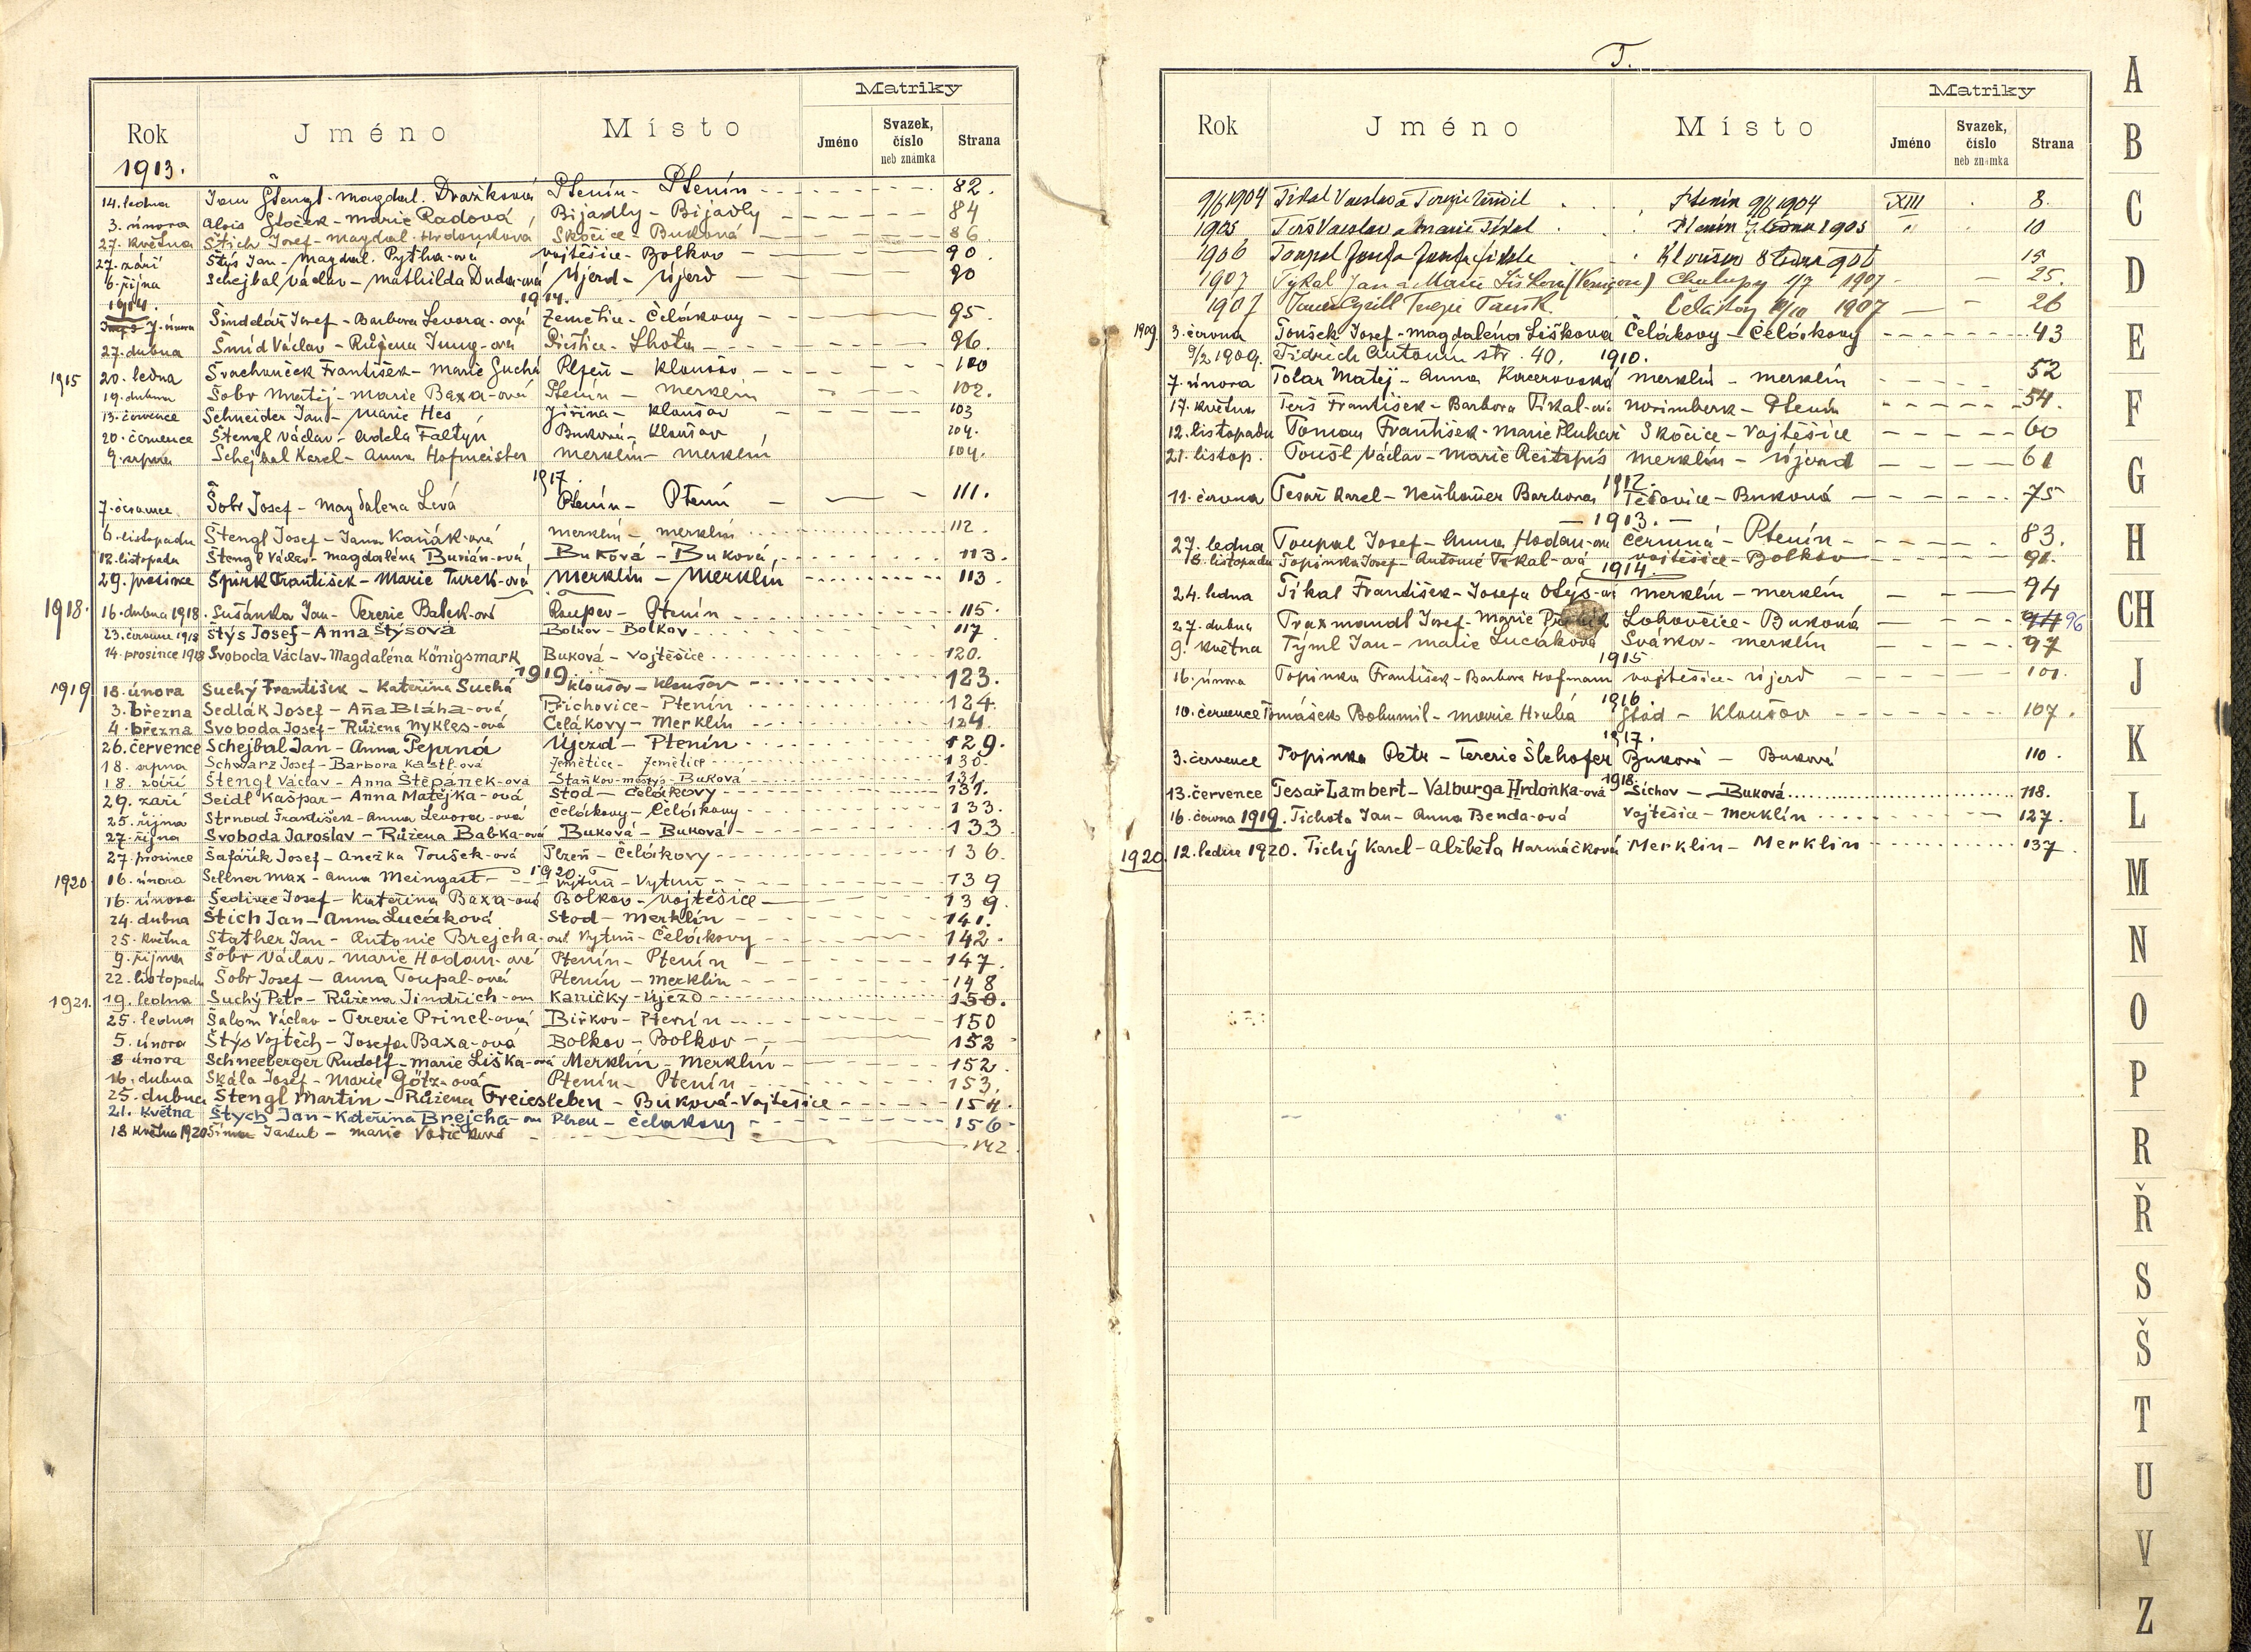 Matriky
Rok Jméno Místo Jméno Svazek, číslo neb známka Strana
1913.
14. ledna Jan Štengl - Magdal. Dražková Ptenín - Ptenín 82.
3. února Alois - Marie Radová, Bijadly - Bijadly 84
27. května Štich Josef - Magdal. Hrdonková Skočice - Buková 86
27. září Štýs Jan - Magdal. Pytha-ová Vojtěšice - Bolkov 90.
6. října Schejbal Václav - Mathilda Duda-ová Újezd - Újezd 90
1914. 1914.
7. února Šindelář Josef - Barbora Levora-ová Zemětice - Čelákovy 95.
27. dubna Šmíd Václav - Růžena Jung-ová Přeštice - Lhota 96.
1915 20. ledna Švachouček František - Marie Suchá Plzeň - Kloušov 100
19. dubna Šobr Matěj - Marie Baxa-ová Ptenín - Merklín 102.
13. července Schneider Jan - Marie Hes Jiřina - Kloušov 103
20. července Štengl Václav - Adéla Faltýn Buková - Kloušov 104.
9. srpna Schejbal Karel - Anna Hofmeister Merklín - Merklín 104.
1917.
7. července Šobr Josef - Magdalena Levá Ptenín - Ptenín 111.
6. listopadu Štengl Josef - Jana Kaňák-ová Merklín - Merklín 112.
12. listopadu Štengl Václav - Magdaléna Burián-ová Buková - Buková 113.
29. prosince Špirk František - Marie Turek-ová Merklín - Merklín 113.
1918. 16. dubna 1918. Sušánka Jan - Terezie Balek-ová Roupov - Ptenín 115.
23. července 1918 Štýs Josef - Anna Štýsová Bolkov - Bolkov 117
14. prosince 1918 Svoboda Václav - Magdaléna Königsmark Buková - Vojtěšice 120.
1919
1919 18. února Suchý František - Kateřina Suchá Kloušov - Kloušov 123.
3. března Sedlák Josef - Aña Bláha-ová Příchovice - Ptenín 124.
4. března Svoboda Josef - Růžena Nykles-ová Čelákovy - Merklín 124.
26. července Schejbal Jan - Anna Peprná Újezd - Ptenín 129.
18. srpna Schwarz Josef - Barbora Kastl-ová Zemětice - Zemětice 130.
18. září Štengl Václav - Anna Štěpánek-ová Staňkov-městys - Buková 131.
29. září Seidl Kašpar - Anna Matějka-ová Stod - Čelákovy 131.
25. října Strnad František - Anna Levora-ová Čelákovy - Čelákovy 133.
27. října Svoboda Jaroslav - Růžena Babka-ová Buková - Buková 133
27. prosince Šafařík Josef - Anežka Toušek-ová Plzeň - Čelákovy 136.
1920.
1920 16. února Sellner Max - Anna Meingast - Vytuň - Vytuň 139
16. února Šedivec Josef - Kateřina Baxa-ová Bolkov - Vojtěšice 139.
24. dubna Štich Jan - Anna Lucáková Stod - Merklín 141.
25. května Stather Jan - Antonie Brejcha-ová Vytuň - Čelákovy 142.
9. října Šobr Václav - Marie Hodan-ová Ptenín - Ptenín 147.
22. listopadu Šobr Josef - Anna Toupal-ová Ptenín - Merklín 148
1921. 19. ledna Suchý Petr - Růžena Jindřich-ová Kaničky - Újezd 150.
25. ledna Šalom Václav - Terezie Princl-ová Biřkov - Ptenín 150
5. února Štýs Vojtěch - Josefa Baxa-ová Bolkov - Bolkov 152
8 února Schneeberger Rudolf - Marie Liška-ová Merklín - Merklín 152.
16. dubna Skála Josef - Marie Götz-ová Ptenín - Ptenín 153.
25. dubna Štengl Martin - Růžena Freiesleben - Buková - Vojtěšice 154.
21. května Štych Jan - Kateřina Brejcha-ová Plzeň - Čelákovy 156
18 května 1920 Jakub - Marie 142.
T.
Matriky
Rok Jméno Místo Jméno Svazek, číslo neb známka Strana
9/6 1904 Tikal Václav a Terezie Ptenín 9/6 1904 XIII 8.
1905 Terš Václav a Marie Tikal Ptenín 7 ledna 1905 " 10
1906 Toupal Josefa Kloušov 8 1906 15
1907 Tykal Jan a Marie Lišková Chalupy 1/7 1907 25.
1907 Cyrill Terezie 1907 26
1909. 3. června Toušek Josef - Magdaléna Lišková Čelákovy - Čelákovy 43
9/2 1909. Jidřich Antonín str. 40. 1910.
7. února Tolar Matěj - Anna Kacerovská Merklín - Merklín 52
17. května Terš František - Barbora Tikal-ová Norimberk - Ptenín 54.
12. listopadu Toman František - Marie Pluhař Skočice - Vojtěšice 60
21. listop. Toušl Václav - Marie Reitspís Merklín - Újezd 61
1912.
11. června Tesař Karel - Neühauer Barbora Těšovice - Buková 75
- 1913. -
27. ledna Toupal Josef - Anna Hodan-ová Černná - Ptenín 83.
18. listopadu Topinka Josef - Antonie Tikal-ová Vojtěšice - Bolkov 91.
1914.
24. ledna Tikal František - Josefa Merklín - Merklín 94
27. dubna Traxmandl Josef - Marie Lohovčice - Buková 96
9. května Týml Jan - Marie Lucáková Svárkov - Merklín 97
1915
16. února Topinka František - Barbora Hofmann Vojtěšice - Újezd 101.
1916
10. července Tomášek Bohumil - Marie Hrubá Stod - Kloušov 107.
1917.
3. července Topinka Petr - Terezie Šlehofer Buková - Buková 110.
1918.
13. července Tesař Lambert - Valburga Hrdoňka-ová Šichov - Buková 118.
16. června 1919. Tichota Jan - Anna Benda-ová Vojtěšice - Merklín 127.
1920. 12. ledna 1920. Tichý Karel - Alžběta Harmáčková Merklín - Merklín 137.
A
B
C
D
E
F
G
H
CH
J
K
L
M
N
O
P
R
Ř
S
Š
T
U
V
Z